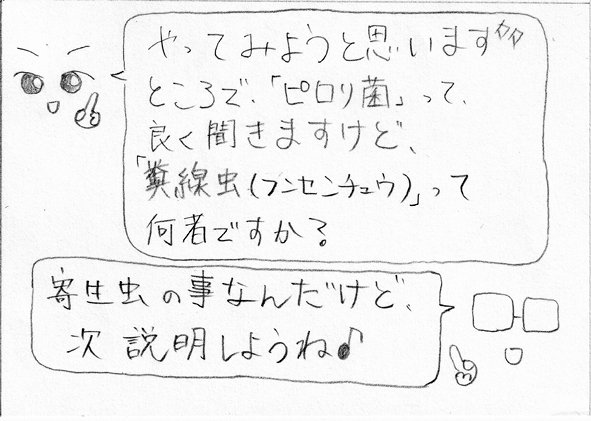 やってみようと思います〃
ところで、「ピロリ菌」って、
良く聞きますけど、
「糞線虫(フンセンチュウ)」って
何者ですか？
寄生虫の事なんだけど、
次 説明しようね♪